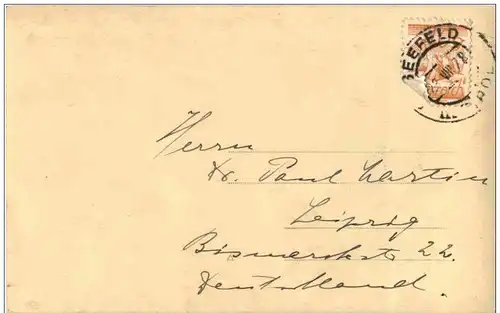 SEEFELD
Herrn
Dr. Paul Martin
Leipzig
Bismarckstr. 22.
Deutschland.